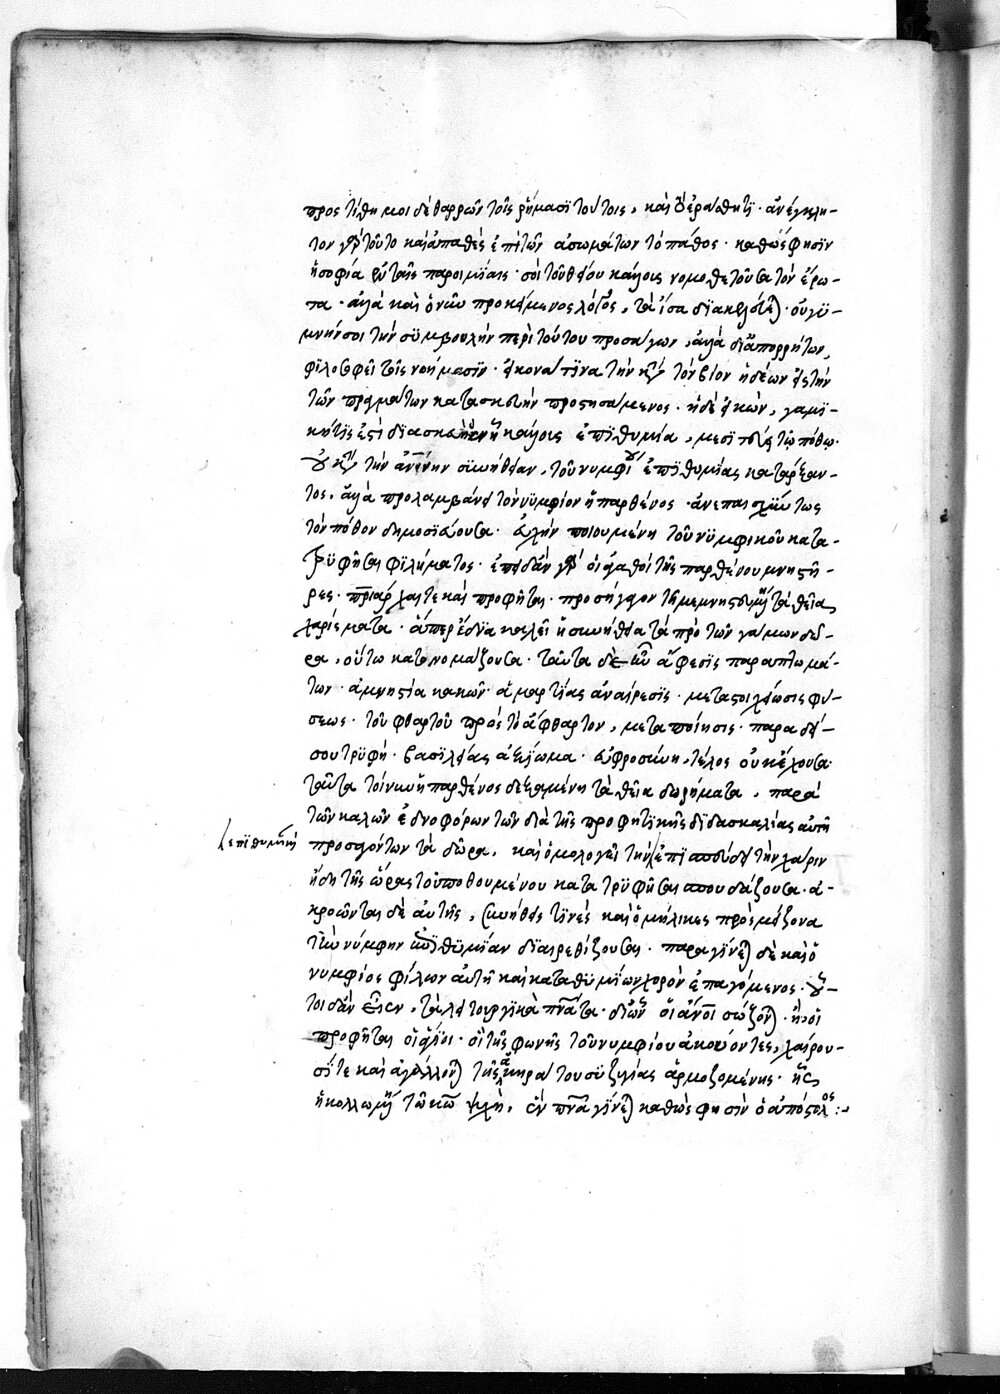 προστίθημι δὲ θαρρῶν τοῖς ῥήμασι τούτοις, καὶ τὸ ἐράσθητι· ἀνέγκλη-
τον γὰρ τοῦτο καὶ ἀπαθὲς ἐπὶ τῶν ἀσωμάτων τὸ πάθος· καθώς φησιν
ἡ σοφία ἐν ταῖς παροιμίαις· τοῦ θείου κάλλους νομοθετοῦσα τὸν ἔρω-
τα· ἀλλὰ καὶ ὁ νῦν προκείμενος λόγος, τὰ ἴσα διακελεύεται· οὐ γυ-
μνήν σοι τὴν συμβουλὴν περὶ τούτου προσάγων, ἀλλὰ δι' ἀπορρήτων
φιλοσοφεῖ τοῖς νοήμασιν· εἰκόνα τινὰ τῶν κατὰ τὸν βίον ἡδέων εἰς τὴν
τῶν πραγμάτων κατασκευὴν προστησάμενος· ἡ δὲ εἰκών, γαμι-
κή τίς ἐστι διασκευὴ κάλλους ἐπιθυμία, μεσιτεύει τῷ πόθῳ·
οὐ κατὰ τὴν ἀνθρωπίνην συνήθειαν, τοῦ νυμφίου ἐπιθυμίας κατάρξαν-
τος· ἀλλὰ προλαμβάνει τὸν νυμφίον ἡ παρθένος· ἀνεπαισχύντως
τὸν πόθον δημοσιεύουσα· εὐχὴν ποιουμένη τοῦ νυμφικοῦ κατα-
τρυφῆσαι φιλήματος· ἐπειδὰν γὰρ οἱ ἀγαθοὶ τῆς παρθένου μνηστῆ-
ρες· πατριάρχαι τε καὶ προφῆται· προσήγαγον τῇ μεμνηστευμένῃ τὰ θεῖα
χαρίσματα· ἅπερ ἕδνα καλεῖ ἡ συνήθεια τὰ πρὸ τῶν γάμων δῶ-
ρα, οὕτω κατονομάζουσα· ταῦτα δὲ ἦν ἄφεσις παραπτωμά-
των· ἀμνηστία κακῶν· ἁμαρτίας ἀναίρεσις· μεταστοιχείωσις φύ-
σεως· τοῦ φθαρτοῦ πρὸς τὸ ἄφθαρτον, μεταποίησις· παραδεί-
σου τρυφή· βασιλείας ἀξίωμα· εὐφροσύνη, τέλος οὐκ ἔχουσα·
ταῦτα τοίνυν ἡ παρθένος δεξαμένη τὰ θεῖα δωρήματα, παρὰ
τῶν καλῶν ἑδνοφόρων τῶν διὰ τῆς προφητικῆς διδασκαλίας αὐτῇ
προσαγόντων τὰ δῶρα, καὶ ὁμολογεῖ τὴν ἐπισπεύδει τὴν χάριν
ἤδη τῆς ὥρας τοῦ ποθουμένου κατατρυφῆσαι σπουδάζουσα· ἀ-
κροῶνται δὲ αὐτῆς, συνήθεις τινὲς καὶ ὁμήλικες πρὸς μείζονα
τὴν νύμφην ἐπιθυμίαν διαιρεθίζουσαι· παραγίνεται δὲ καὶ ὁ
νυμφίος φίλων αὐτῇ καὶ καταθυμίων χορὸν ἐπαγόμενος· οὗ-
τοι δ' ἂν εἶεν, τὰ λειτουργικὰ πνεύματα· δι' ὧν οἱ ἄνθρωποι σώζονται· ἢ οἱ
προφῆται οἱ ἅγιοι· οἳ τῆς φωνῆς τοῦ νυμφίου ἀκούοντες, χαίρου-
σί τε καὶ ἀγάλλονται τῆς ἀκηράτου συζυγίας ἁρμοζομένης· ἧς
ἡ κολλωμένη τῷ κυρίῳ ψυχή, ἓν πνεῦμα γίνεται καθώς φησιν ὁ ἀπόστολος:
ἐπιθυμίαν